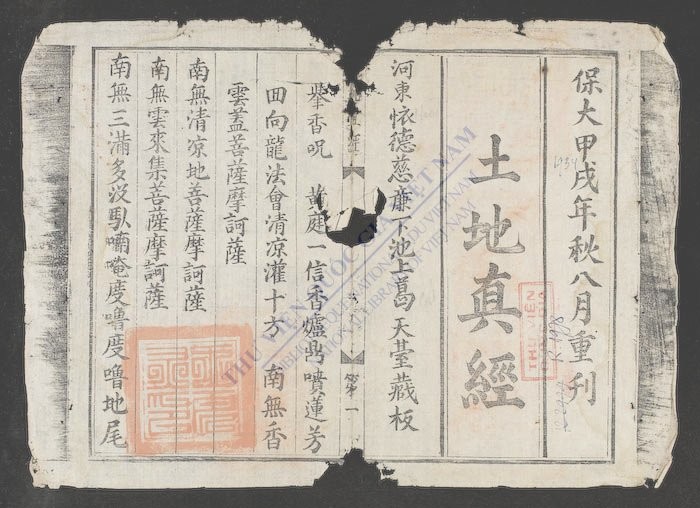 保大甲戌年秋八月重刊
土地真經
河東怀德慈廉下池上葛天臺藏板
第一
舉香呪 黃庭一信香爐鼎噴蓮芳
田向龍法會清凉灌十方 南無香
雲盖菩薩摩訶薩
南無清凉地菩薩摩訶薩
南無雲來集菩薩摩訶薩
南無三滿多没馱喃唵度嚕度嚕地尾
THƯ VIỆN QUỐC GIA VIỆT NAM
BIBLIOTHÈQUE NATIONALE DU VIETNAM
NATIONAL LIBRARY OF VIETNAM
THƯ VIỆN
1934